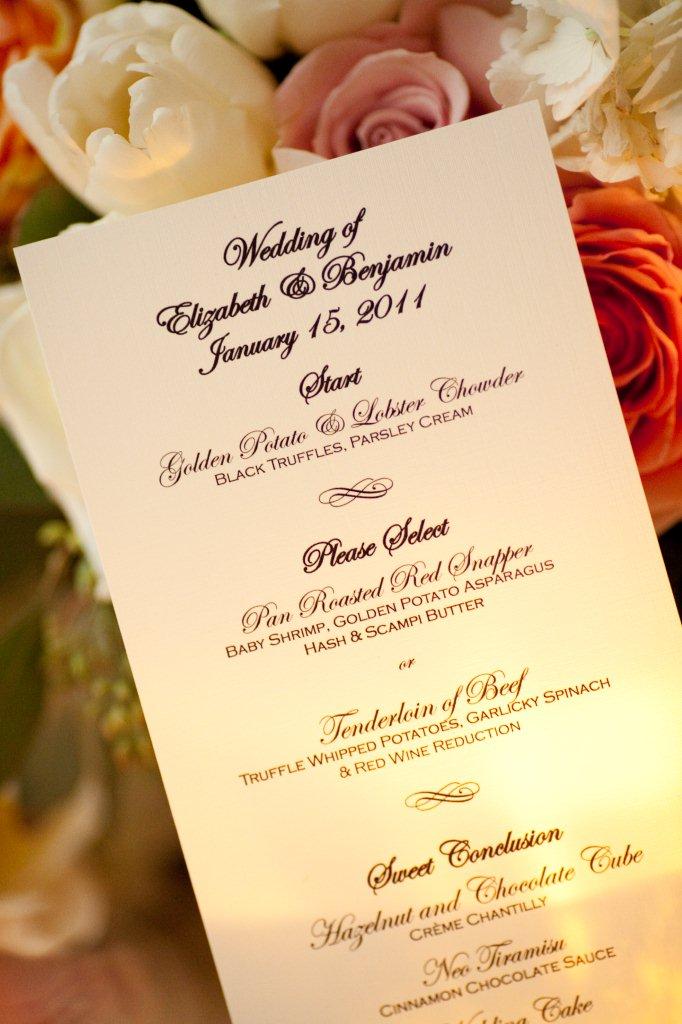 Wedding of
Elizabeth & Benjamin
January 15, 2011
Start
Golden Potato & Lobster Chowder
BLACK TRUFFLES, PARSLEY CREAM
Please Select
Pan Roasted Red Snapper
BABY SHRIMP, GOLDEN POTATO ASPARAGUS
HASH & SCAMPI BUTTER
or
Tenderloin of Beef
TRUFFLE WHIPPED POTATOES, GARLICKY SPINACH
& RED WINE REDUCTION
Sweet Conclusion
Hazelnut and Chocolate Cube
CRÈME CHANTILLY
Neo Tiramisu
CINNAMON CHOCOLATE SAUCE
Wedding Cake